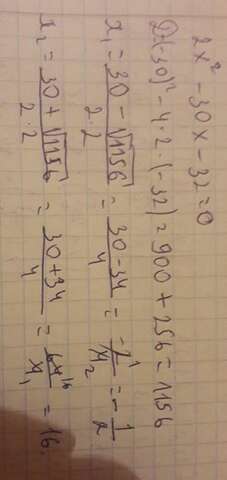 2x² - 30x - 32 = 0
D:(-30)² - 4·2·(-32) = 900 + 256 = 1156
x₁ = (30 - √1156)/(2·2) = (30 - 34)/4 = -2¹/4₂ = -1/2
x₂ = (30 + √1156)/(2·2) = (30 + 34)/4 = 64¹⁶/4₁ = 16.